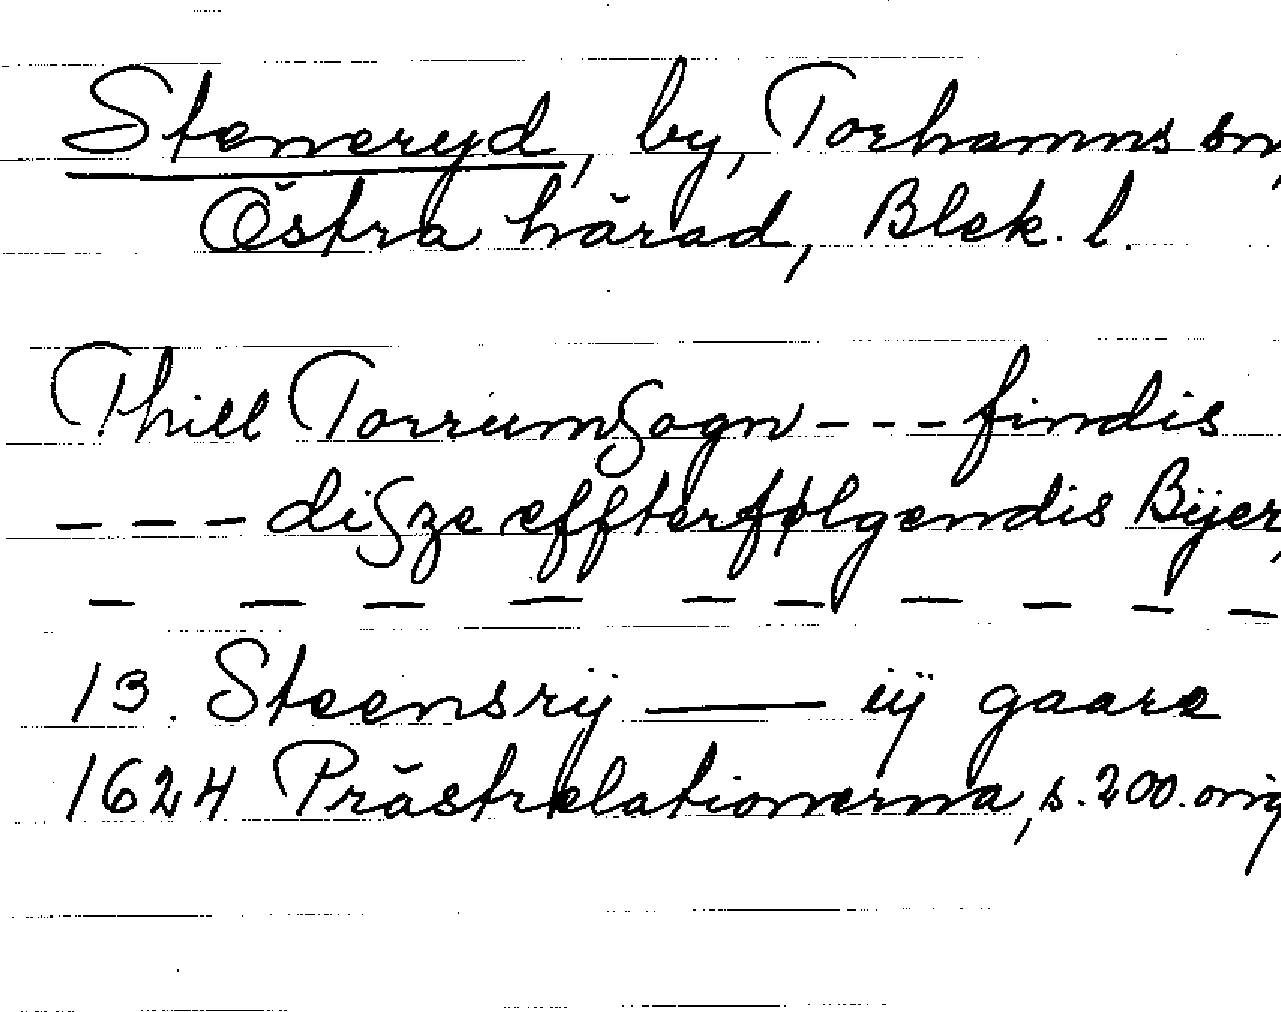 Steneryd, by, Torhamns sn,
Östra härad, Blek. l.
Thill Torrumsogn - - - findis
- - - disze effterfølgendis Bijer,
— — — — — — — — — —
13. Steensrij —— iij gaare
1624 Prästrelationerna, s. 200. orig